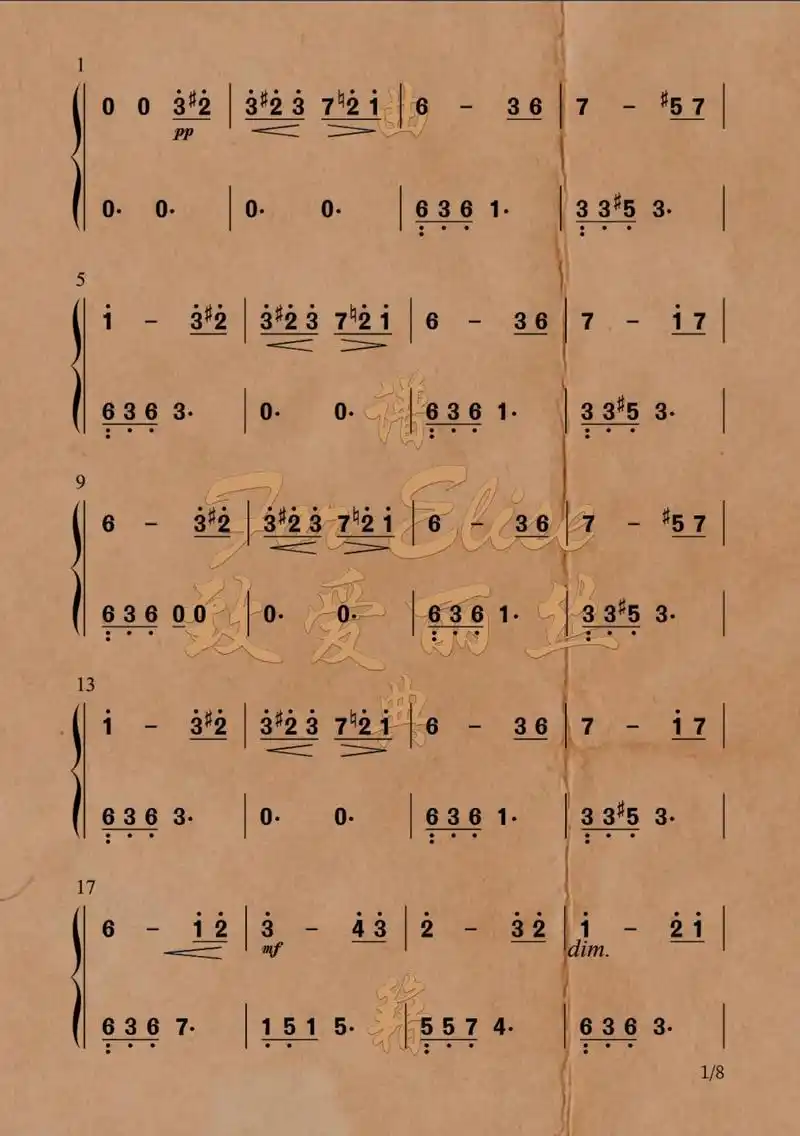 1
0 0 3̇ #2̇ | 3̇ #2̇ 3̇ 7 ♮2̇ 1̇ | 6 – 3 6 | 7 – #5 7 |
pp
0· 0· | 0· 0· | 6̣̣ 3̣ 6̣ 1· | 3̣̣ 3̣ #5̣ 3· |
曲
5
1̇ – 3̇ #2̇ | 3̇ #2̇ 3̇ 7 ♮2̇ 1̇ | 6 – 3 6 | 7 – 1̇ 7 |
6̣̣ 3̣ 6̣ 3· | 0· 0· | 6̣̣ 3̣ 6̣ 1· | 3̣̣ 3̣ #5̣ 3· |
谱
9
6 – 3̇ #2̇ | 3̇ #2̇ 3̇ 7 ♮2̇ 1̇ | 6 – 3 6 | 7 – #5 7 |
For Elise
6̣̣ 3̣ 6̣ 0 0 | 0· 0· | 6̣̣ 3̣ 6̣ 1· | 3̣̣ 3̣ #5̣ 3· |
致爱丽丝
13
1̇ – 3̇ #2̇ | 3̇ #2̇ 3̇ 7 ♮2̇ 1̇ | 6 – 3 6 | 7 – 1̇ 7 |
典
6̣̣ 3̣ 6̣ 3· | 0· 0· | 6̣̣ 3̣ 6̣ 1· | 3̣̣ 3̣ #5̣ 3· |
17
6 – 1̇ 2̇ | 3̇ – 4̇ 3̇ | 2̇ – 3̇ 2̇ | 1̇ – 2̇ 1̇ |
mf dim.
6̣̣ 3̣ 6̣ 7· | 1̣ 5̣ 1 5· | 5̣̣ 5̣ 7̣ 4· | 6̣̣ 3̣ 6̣ 3· |
籍
1/8